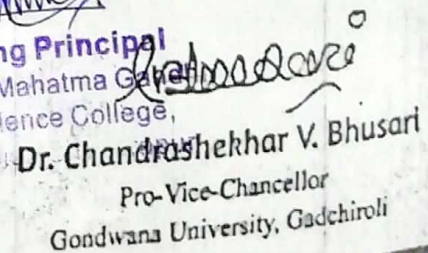 ng Principal
Mahatma
ence College,
Dr. Chandrashekhar V. Bhusari
Pro-Vice-Chancellor
Gondwana University, Gadchiroli